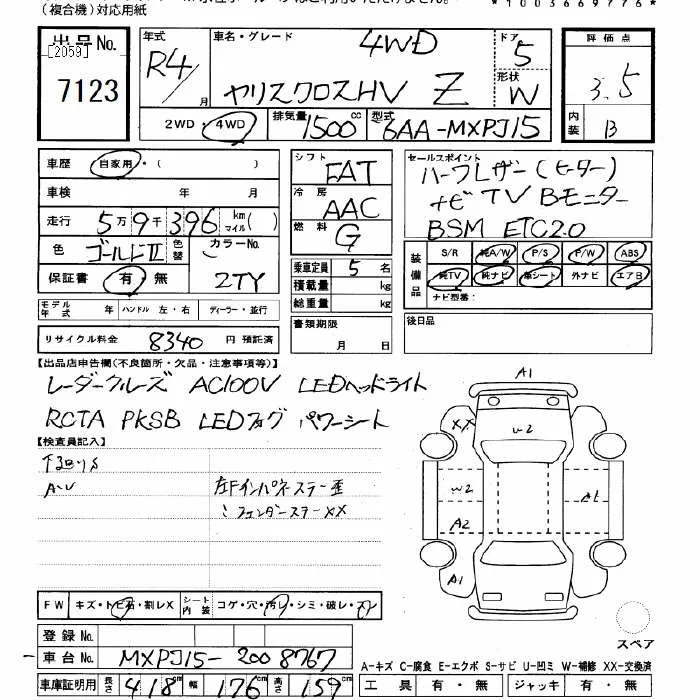 (複合機)対応用紙
*1003669776*
出品No.
[2059]
7123
年式
R4/月
車名・グレード
4WD
ヤリスクロスHV Z
ドア
5
形状
W
評価点
3.5
内装
B
2WD・4WD
排気量
1500cc
型式
6AA-MXPJ15
車歴
自家用・( )
車検 年 月
走行 5万9千396 km マイル( )
色 ゴールドⅡ 色替 カラーNo.
2TY
保証書 有・無
モデル年式 年 ハンドル 左・右 ディーラー・並行
リサイクル料金 8340 円 預託済
シフト
FAT
冷房
AAC
燃料
G
乗車定員 5 名
積載量 kg
総重量 kg
書類期限
月 日
セールスポイント
ハーフレザー(ヒーター)
ナビ TV Bモニター
BSM ETC2.0
装備品
S/R 純A/W P/S P/W ABS
純TV 純ナビ 革シート 外ナビ エアB
ナビ型番:
後日品
【出品店申告欄(不良箇所・欠品・注意事項等)】
レーダークルーズ AC100V LEDヘッドライト
RCTA PKSB LEDフォグ パワーシート
【検査員記入】
下回りS
A~W
左Fインパネステー歪
〃フェンダーステーXX
A1
XX
W2
W2
A2
A1
A1
スペア
FW キズ・トビ石・割レX
シート内装 コゲ・穴・汚レ・シミ・破レ・スレ
登録No.
車台No. MXPJ15-2008767
車庫証明用 長さ 418cm 幅 176cm 高さ 159cm
A-キズ C-腐食 E-エクボ S-サビ U-凹ミ W-補修 XX-交換済
工具 有・無 ジャッキ 有・無